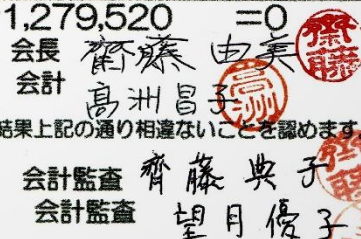 1,279,520 =0
会長 齋藤 由美
会計 髙洲昌子
結果上記の通り相違ないことを認めます
会計監査 齊藤典子
会計監査 望月優子